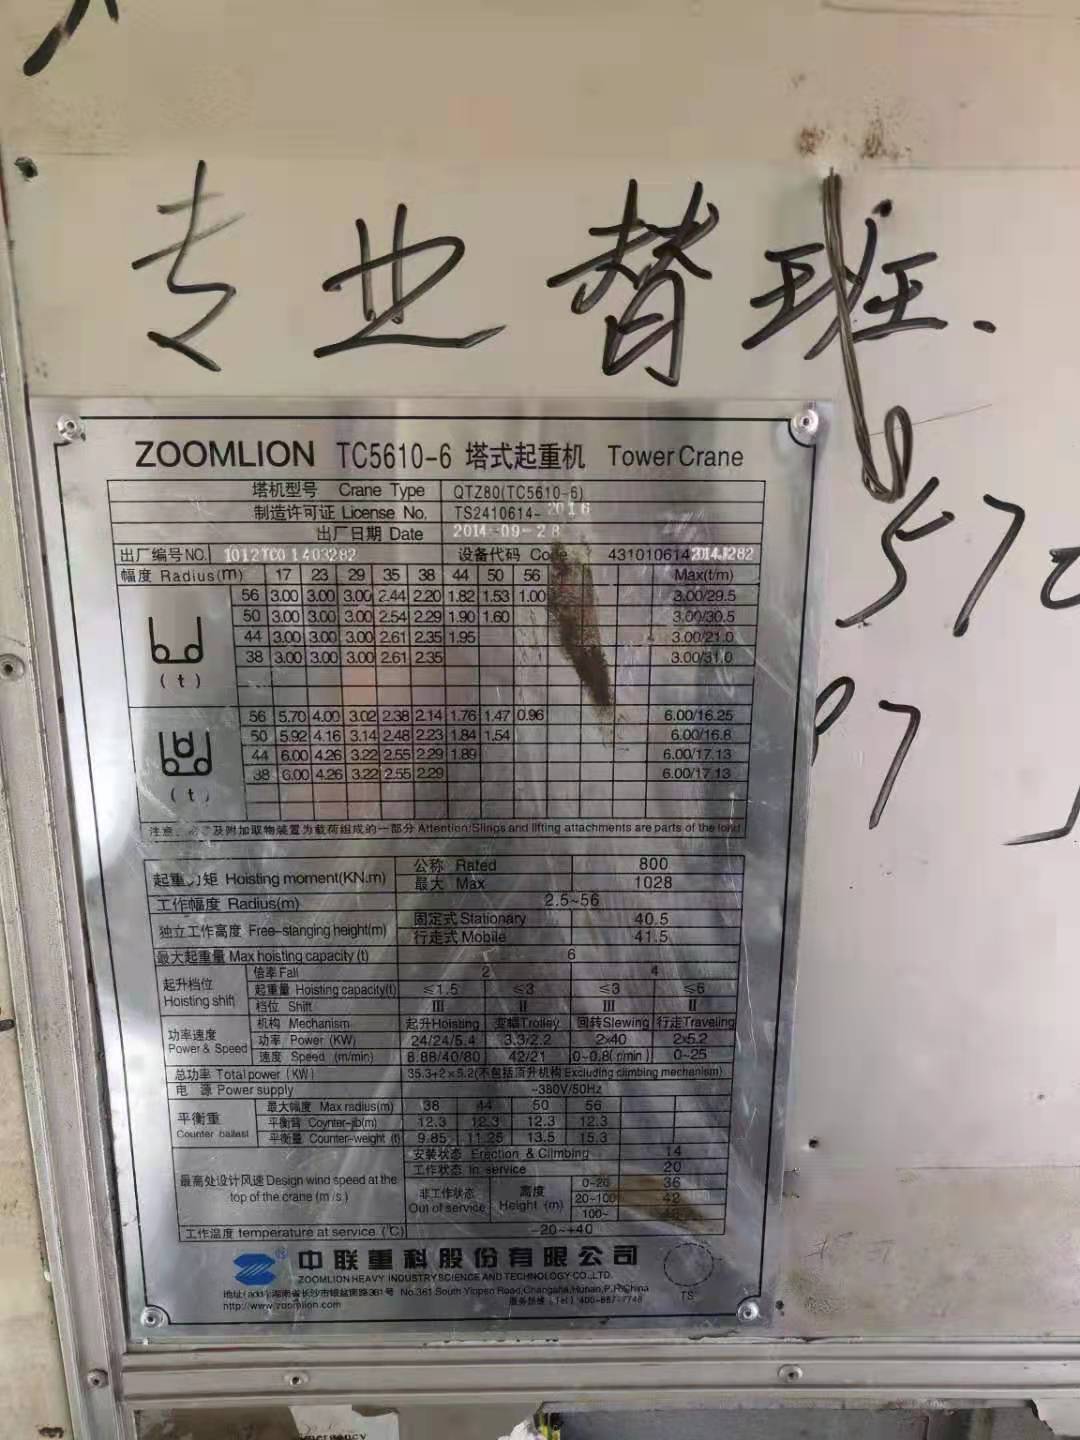 专业替班.
570
97
ZOOMLION TC5610-6 塔式起重机 Tower Crane
塔机型号 Crane Type QTZ80(TC5610-6)
制造许可证 License No. TS2410614-2016
出厂日期 Date 2014-09-28
出厂编号NO. 1012TC01403282 设备代码 Code 4310106142014J282
幅度 Radius(m) 17 23 29 35 38 44 50 56 Max(t/m)
56 3.00 3.00 3.00 2.44 2.20 1.82 1.53 1.00 3.00/29.5
50 3.00 3.00 3.00 2.54 2.29 1.90 1.60 3.00/30.5
44 3.00 3.00 3.00 2.61 2.35 1.95 3.00/21.0
38 3.00 3.00 3.00 2.61 2.35 3.00/31.0
(t)
56 5.70 4.00 3.02 2.38 2.14 1.76 1.47 0.96 6.00/16.25
50 5.92 4.16 3.14 2.48 2.23 1.84 1.54 6.00/16.8
44 6.00 4.26 3.22 2.55 2.29 1.89 6.00/17.13
38 6.00 4.26 3.22 2.55 2.29 6.00/17.13
(t)
注意: 及附加取物装置为载荷组成的一部分 Attention:Slings and lifting attachments are parts of the load
起重力矩 Hoisting moment(KN.m) 公称 Rated 800
最大 Max 1028
工作幅度 Radius(m) 2.5~56
独立工作高度 Free-stanging height(m) 固定式 Stationary 40.5
行走式 Mobile 41.5
最大起重量 Max hoisting capacity(t) 6
起升档位 Hoisting shift 倍率 Fall 2 4
起重量 Hoisting capacity(t) ≤1.5 ≤3 ≤3 ≤6
档位 Shift III II III II
功率速度 Power & Speed 机构 Mechanism 起升Hoisting 变幅Trolley 回转Slewing 行走Traveling
功率 Power (KW) 24/24/5.4 3.3/2.2 2×40 2×5.2
速度 Speed (m/min) 8.88/40/80 42/21 0~0.8(r/min) 0~25
总功率 Total power (KW) 35.3+2×5.2(不包括顶升机构 Excluding climbing mechanism)
电 源 Power supply ~380V/50Hz
平衡重 Counter ballast 最大幅度 Max radius(m) 38 44 50 56
平衡臂 Coynter-jib(m) 12.3 12.3 12.3 12.3
平衡量 Counter-weight (t) 9.85 11.25 13.5 15.3
最高处设计风速 Design wind speed at the top of the crane (m/s) 安装状态 Erection & Climbing 14
工作状态 In service 20
非工作状态 Out of service 高度 Height (m) 0~20 36
20~100 42
100~
工作温度 temperature at service (℃) -20~+40
中联重科股份有限公司
ZOOMLION HEAVY INDUSTRY SCIENCE AND TECHNOLOGY CO.,LTD.
地址(add):湖南省长沙市银盆南路361号 No.361 South Yinpen Road,Changsha,Hunan,P.R.China
http://www.zoomlion.com
TS